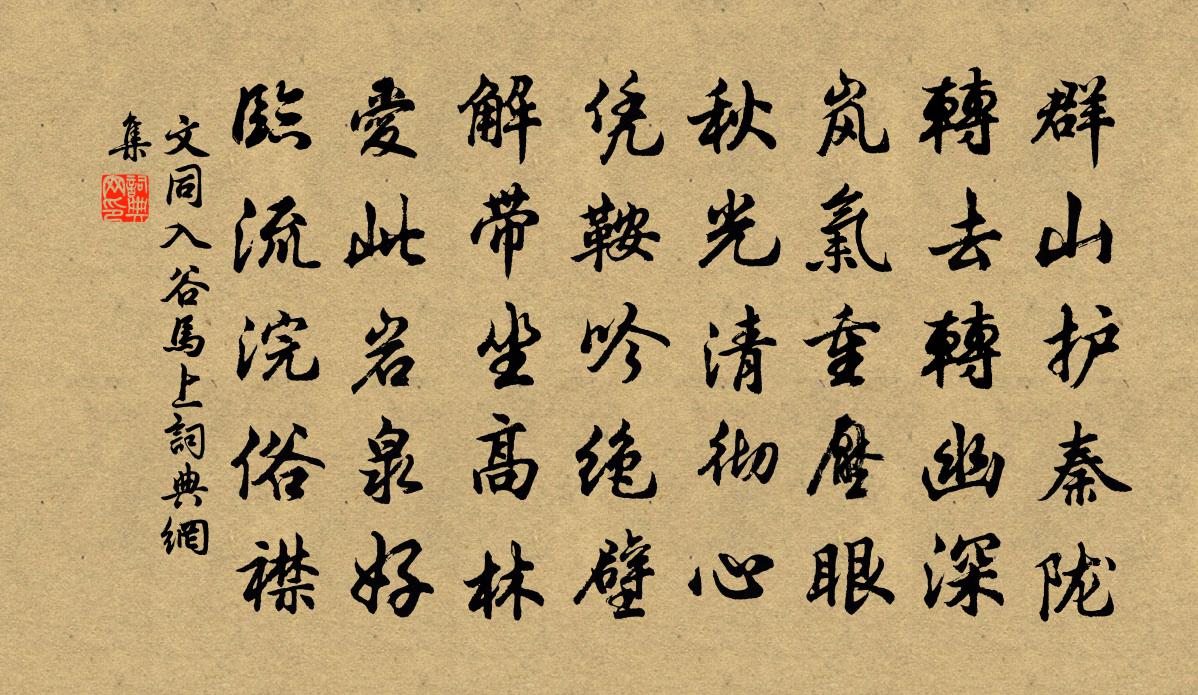 群山护秦陇
轉去轉幽深
岚氣重壓眼
秋光清彻心
凭鞍吟绝壁
解带坐高林
愛此岩泉好
臨流浣俗襟
文同入谷馬上詞典網
集
詞典
网印